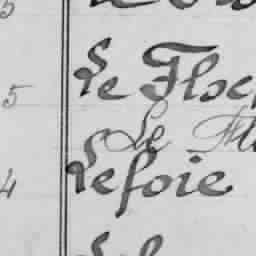 5 Le Floc
Le Fl
4 Lefoie